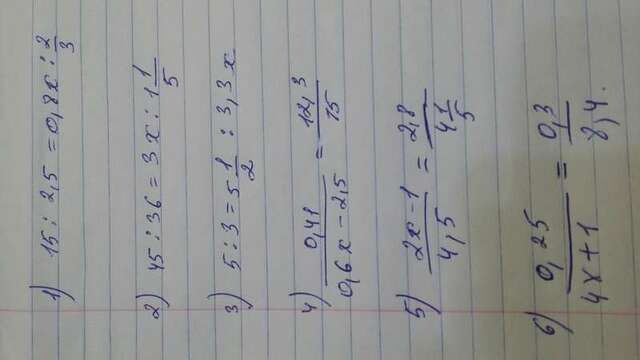 1) 15 : 2,5 = 0,8x : 2/3
2) 45 : 36 = 3x : 1 1/5
3) 5 : 3 = 5 1/2 : 3,3x
4) 0,41/(0,6x - 2,5) = 12,3/15
5) (2x - 1)/4,5 = 2,8/(4 1/5)
6) 0,25/(4x + 1) = 0,3/8,4.